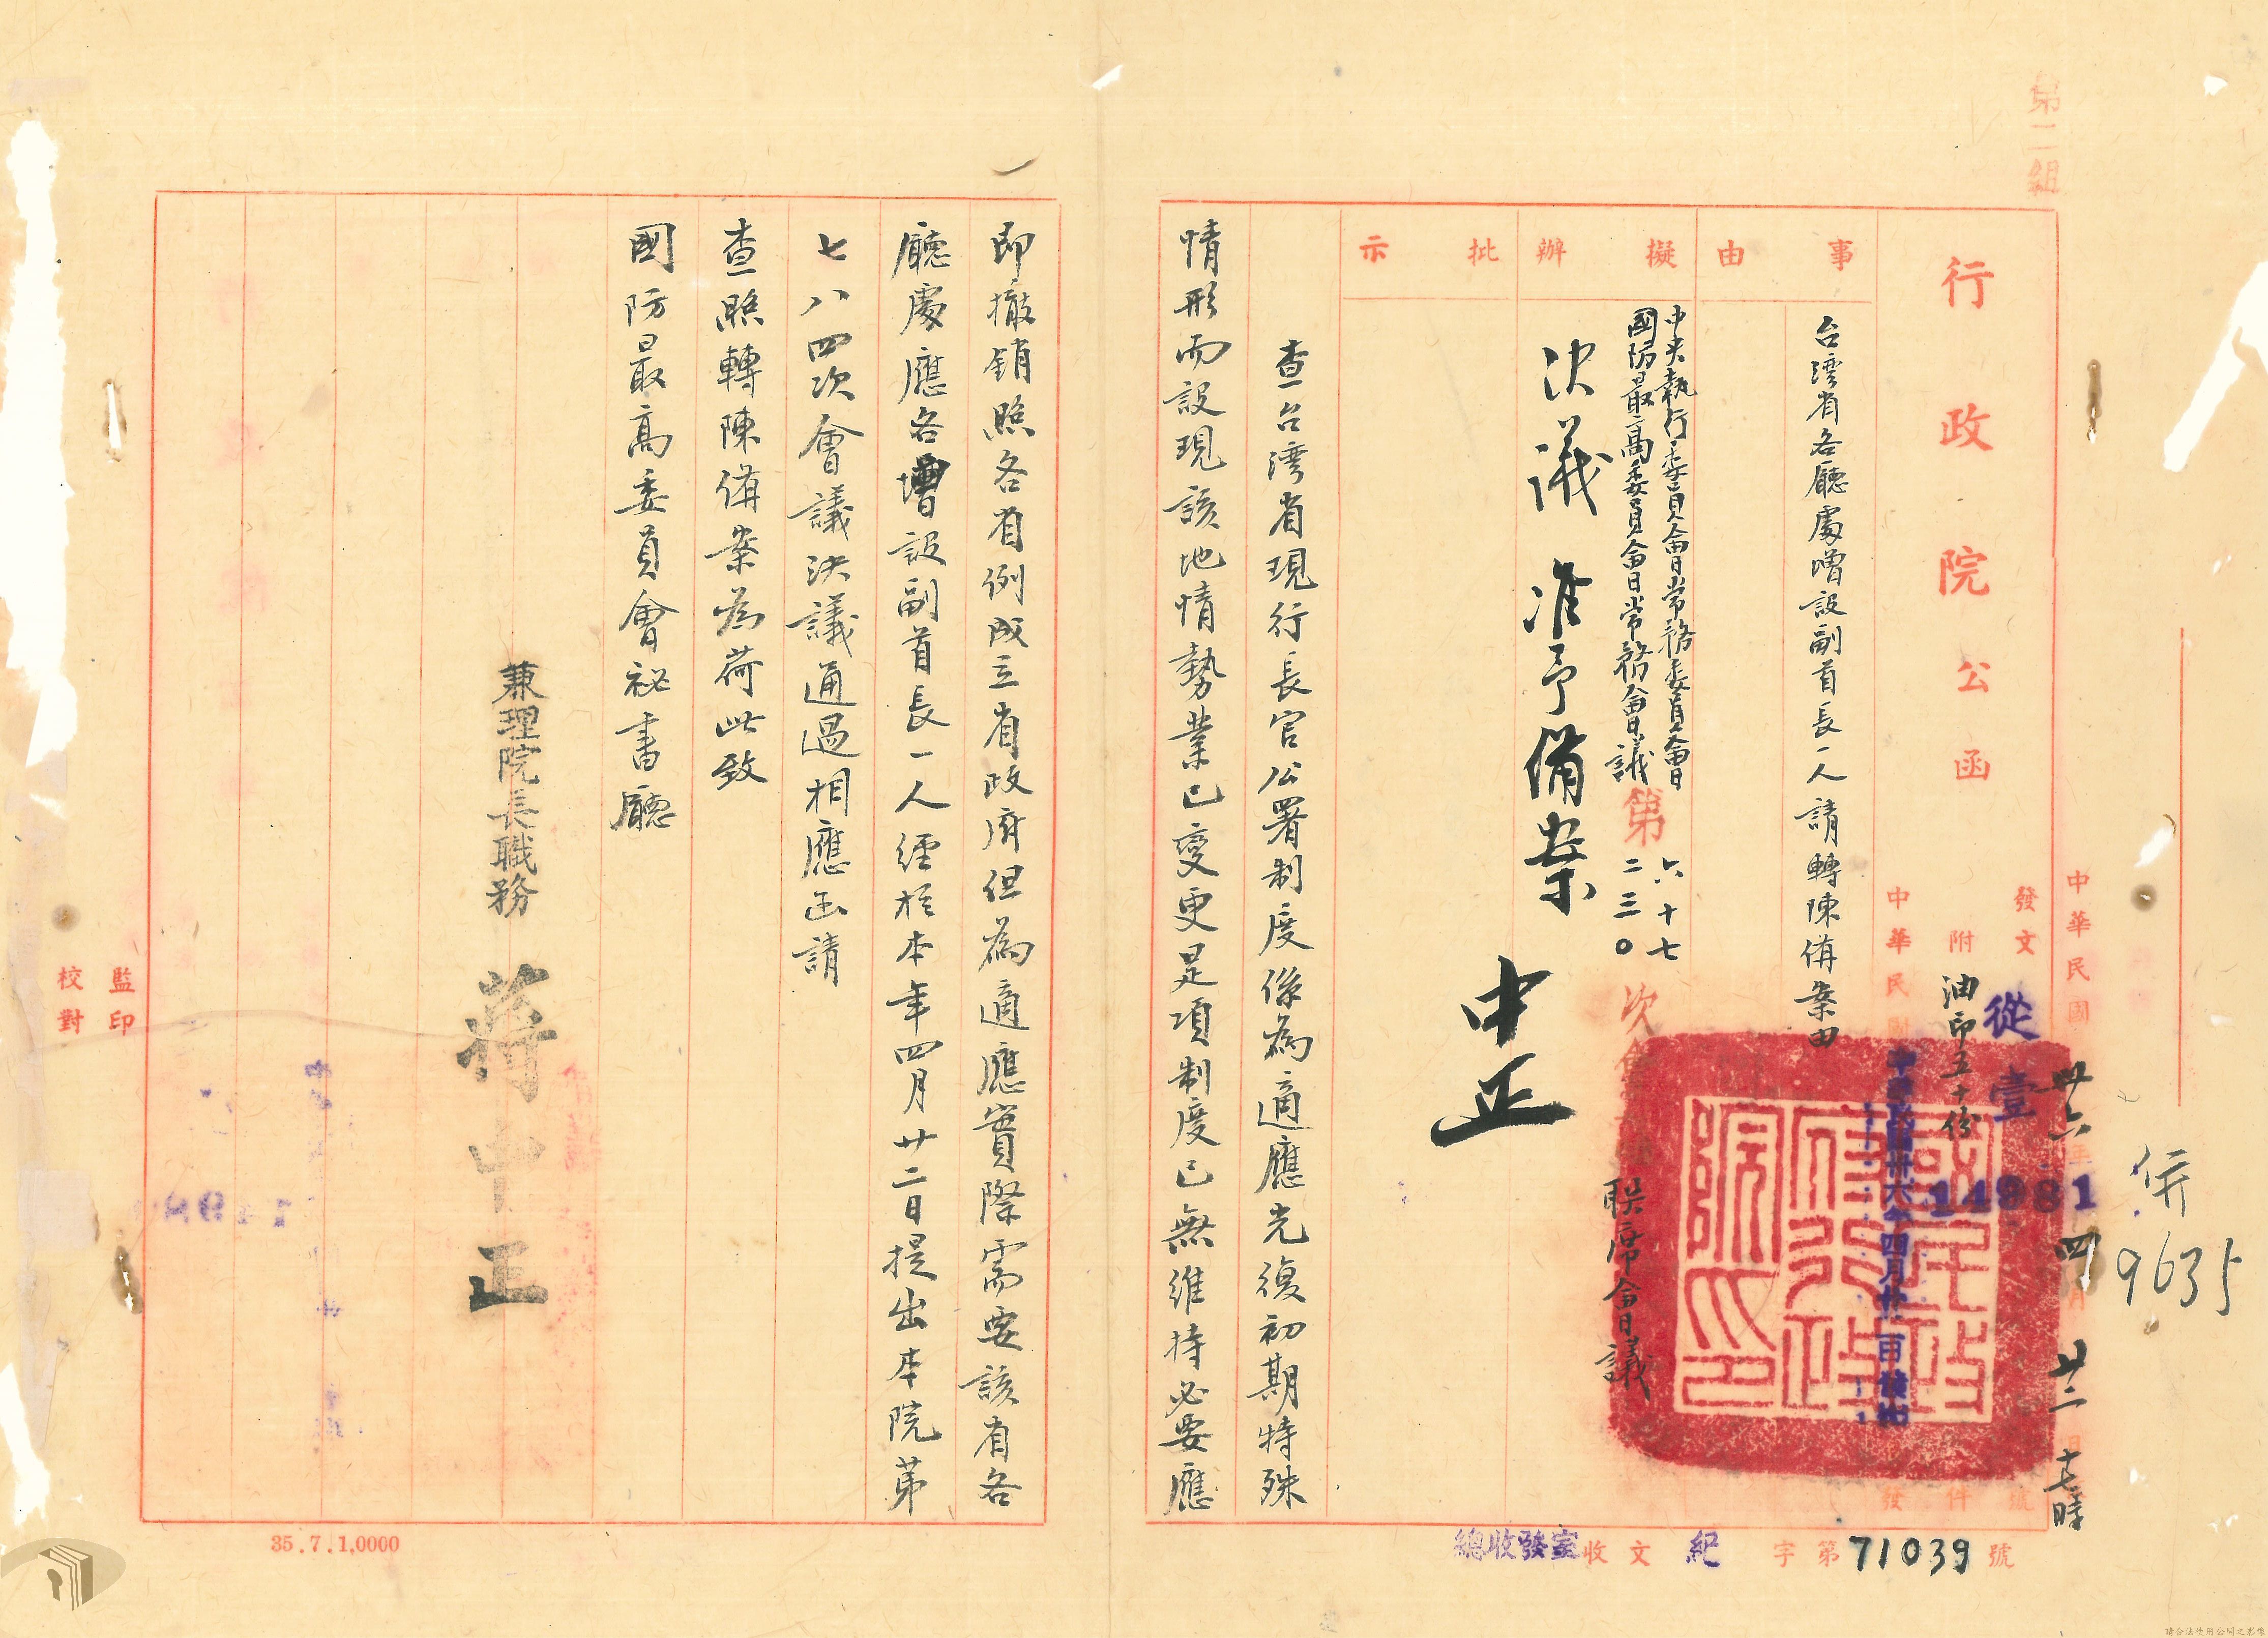 第二組
行政院公函
中華民國 卅六年 四月 廿二日 十七時
發文 從壹 14981 號
附 油印五十份 件
中華民國卅六年四月廿二日發
併
9635
事由
台灣省各廳處增設副首長一人請轉陳備案由
擬辦
中央執行委員會常務委員會
國防最高委員會常務會議
第 六十七
二三〇 次
聯席會議
決議 准予備案
中正
批示
查台灣省現行長官公署制度係為適應光復初期特殊
情形而設現該地情勢業已變更是項制度已無維持必要應
即撤銷照各省例成立省政府但為適應實際需要該省各
廳處應各增設副首長一人經於本年四月廿二日提出本院第
七八四次會議決議通過相應函請
查照轉陳備案為荷此致
國防最高委員會祕書廳
兼理院長職務 蔣中正
監印
校對
總收發室收文 紀 字第71039號
35.7.1.0000
請合法使用公開之影像